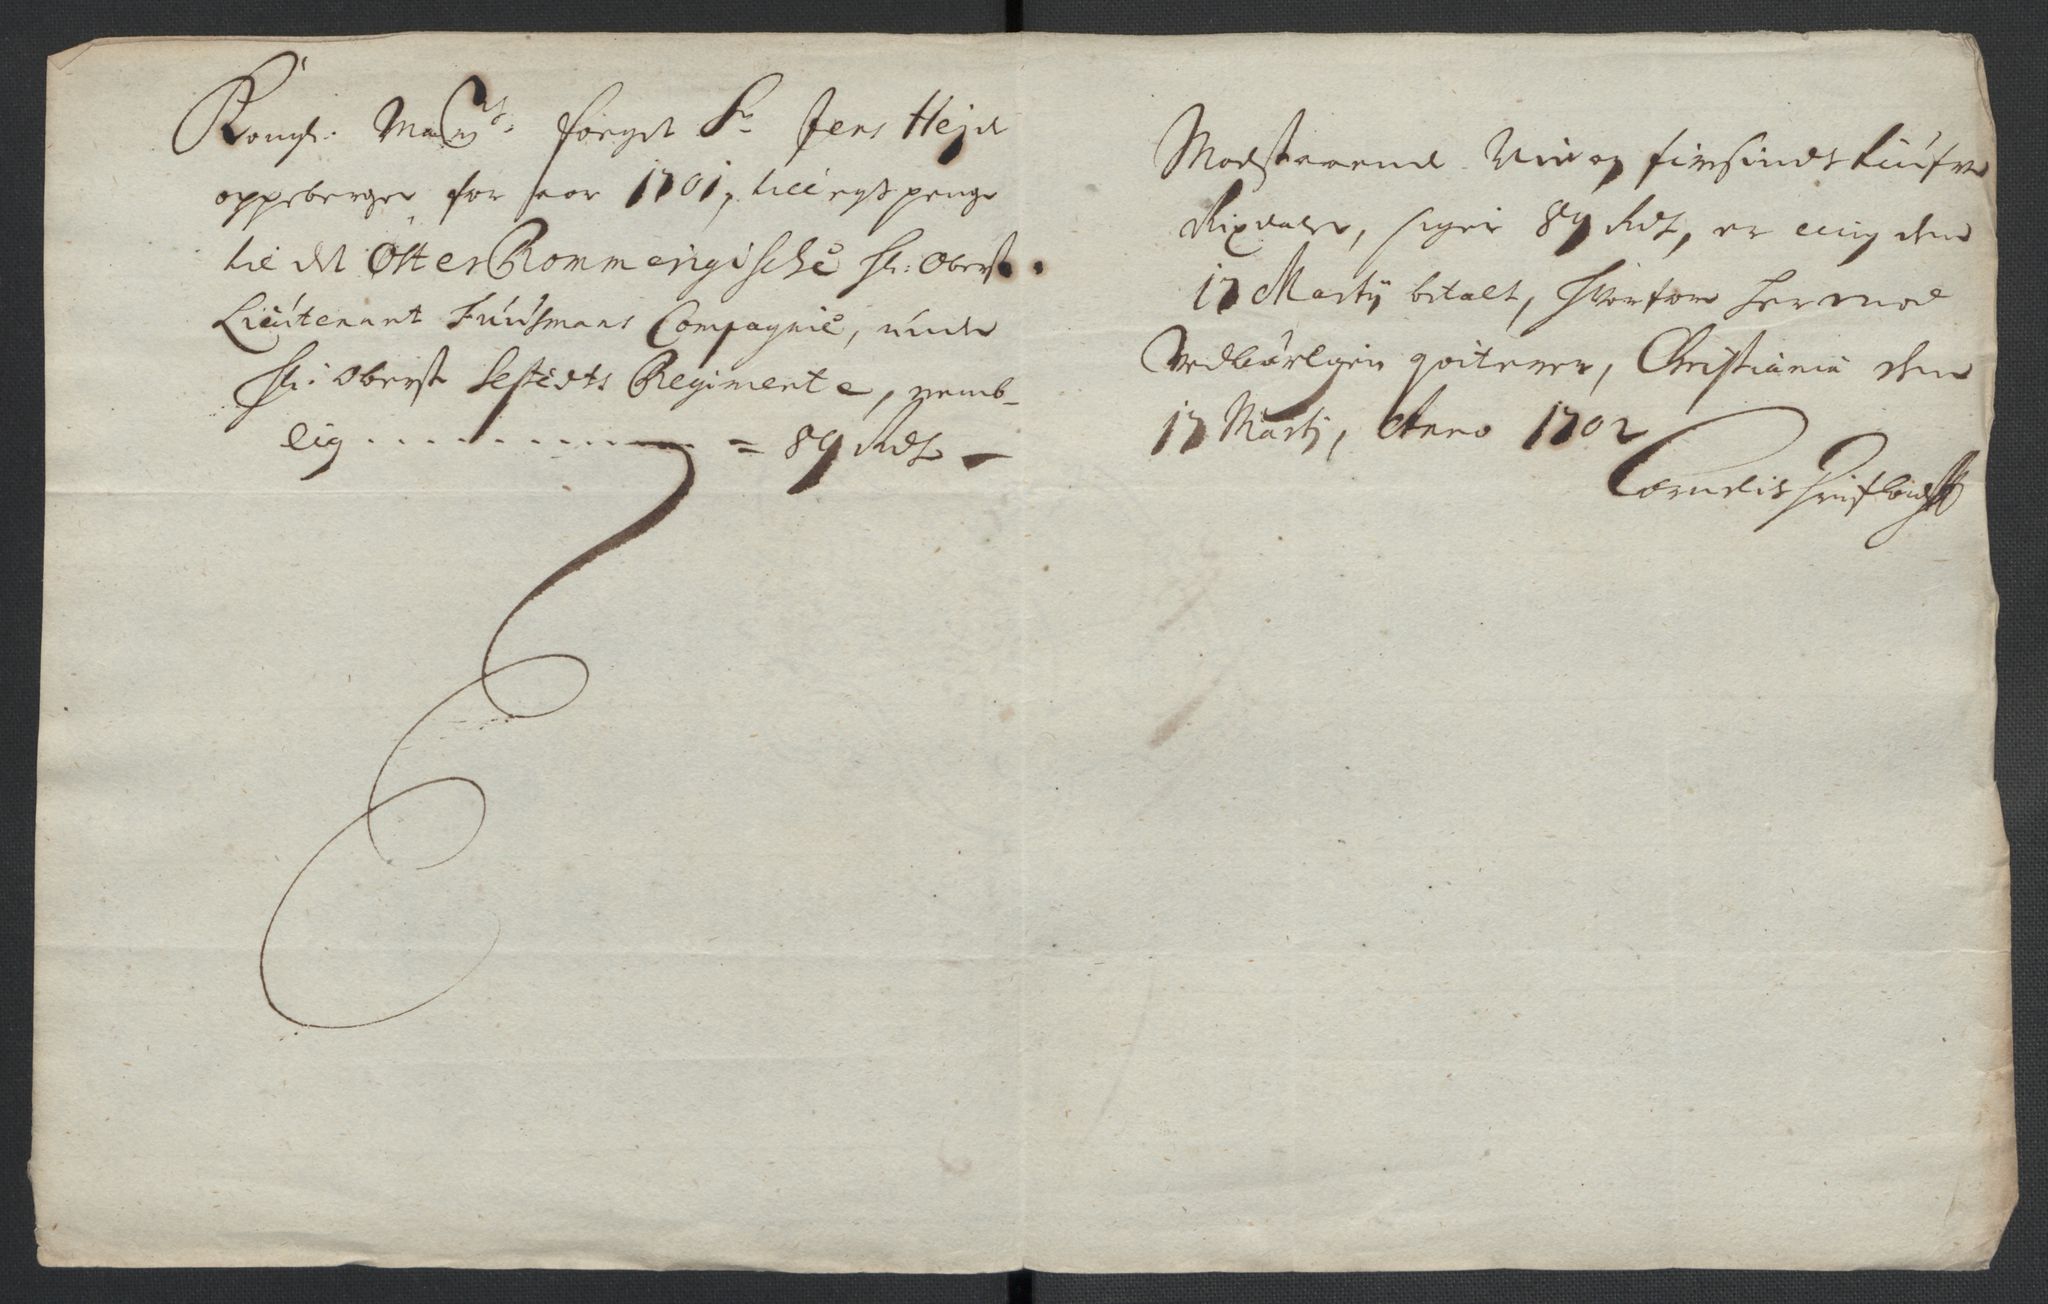 Kongl: May:ts fouget Sr Jens Hejd
oppeberger for aar 1701, tillegs penge
til det Ofter Rommerigische Hr: Oberst
Lieutenant Fuusmans Compagnie, under
Hr: Oberst Sestedts Regimente, nemb-
lig = 89 Rdr
Modstaaende Nie og firesinds tiufve
Rixdaler, siger 89 Rdr, er mig den
17 Martij betalt, hvorfore hermed
vedbørligen qviterer, Christiania den
17 Martij, Anno 1702
Cornelis